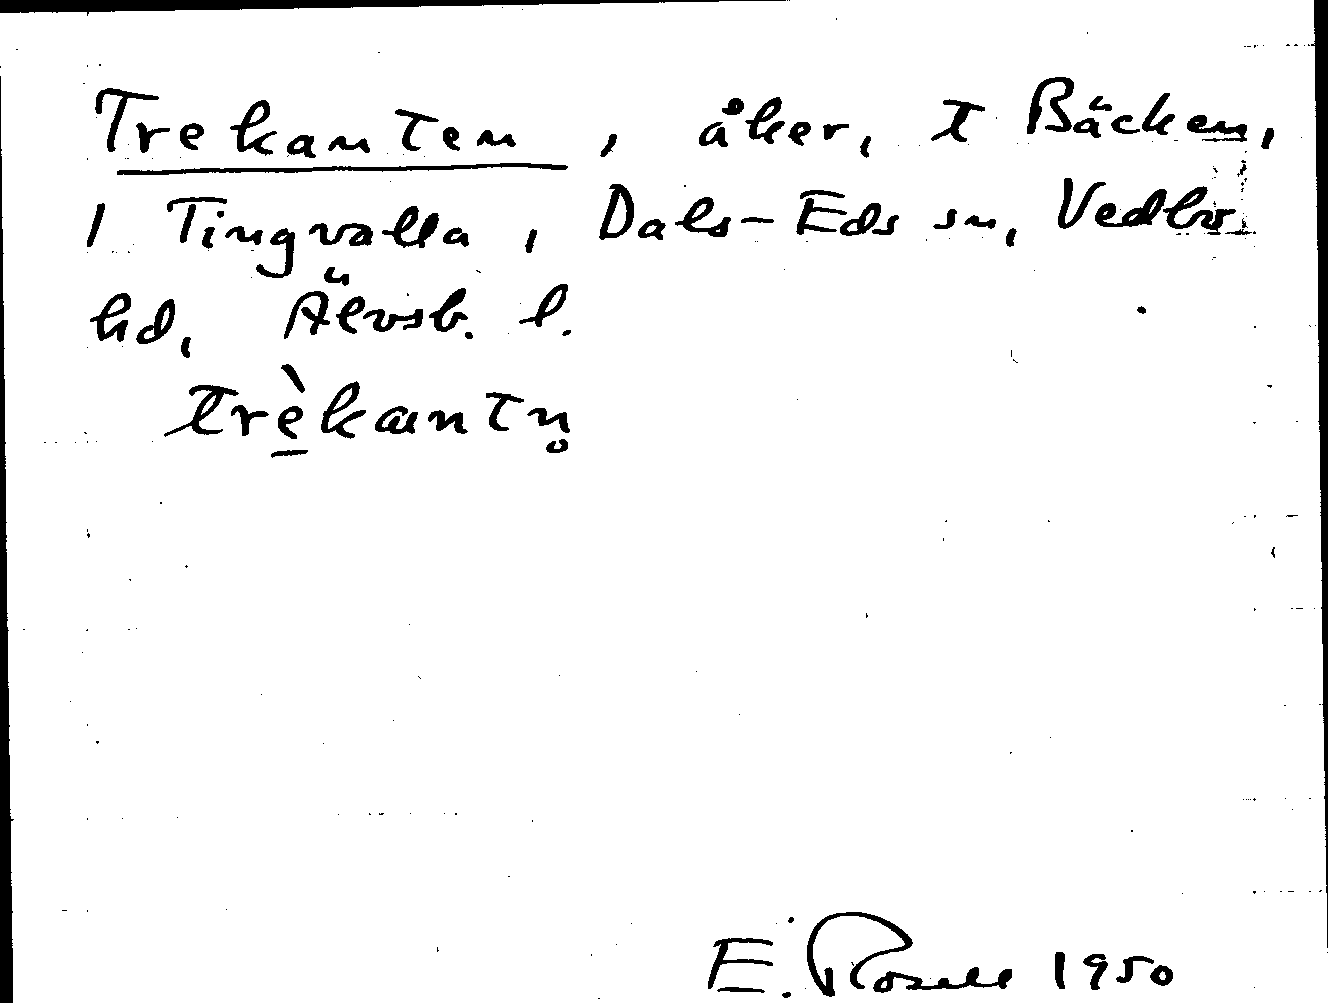 Trekanten, åker, t Bäcken,
1 Tingvalla, Dals-Eds sn, Vedbo
hd, Älvsb. l.
trè̱kantn̥
E. Rosell 1950